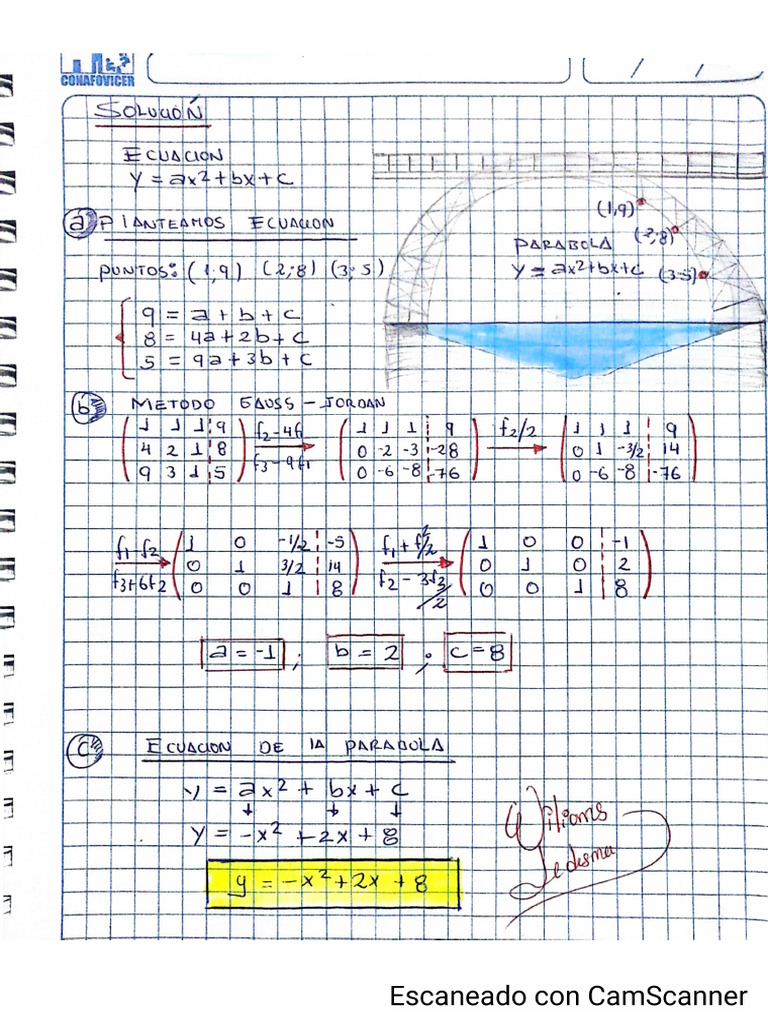 CONAFOVICER
SOLUCIÓN
ECUACION
Y = ax² + bx + c
a) PLANTEAMOS ECUACION
PUNTOS: (1,9) (2;8) (3;5)
9 = a + b + c
8 = 4a + 2b + c
5 = 9a + 3b + c
(1,9)
(2;8)
PARABOLA
Y = ax² + bx + c (3;5)
b) METODO GAUSS - JORDAN
1 1 1 | 9
4 2 1 | 8
9 3 1 | 5
f2 - 4f1
f3 - 9f1
1 1 1 | 9
0 -2 -3 | -28
0 -6 -8 | -76
f2/2
1 1 1 | 9
0 1 -3/2 | 14
0 -6 -8 | -76
f1 - f2
f3 + 6f2
1 0 -1/2 | -5
0 1 3/2 | 14
0 0 1 | 8
f2 - 3f3/2
1 0 0 | -1
0 1 0 | 2
0 0 1 | 8
a = -1 ; b = 2 ; c = 8
c) ECUACION DE LA PARABOLA
y = ax² + bx + c
Y = -x² + 2x + 8
y = -x² + 2x + 8
Wiliams
Ledisma
Escaneado con CamScanner